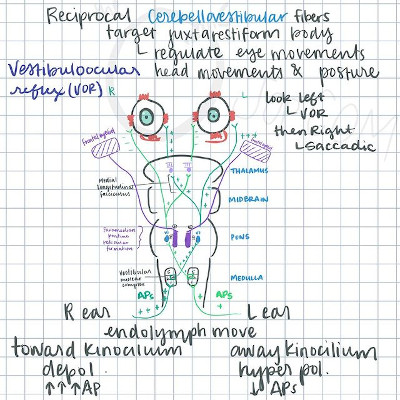 Reciprocal Cerebellovestibular fibers
target juxtarestiform body
└ regulate eye movements
head movements & posture
Vestibuloocular
reflux (VOR) R
L
look left
└ VOR
then Right
└ Saccadic
frontal eyefield
THALAMUS
Medial
longitudinal
fasciculus
MIDBRAIN
PONS
vestibular
nuclear
complex
MEDULLA
APs
APs
R ear
L ear
endolymph move
toward kinocilium
away kinocilium
depol.
hyper pol.
↑↑↑AP
↓ APs